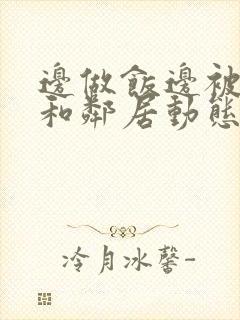 邊做飯邊被
和鄰居動態
冷月冰馨-